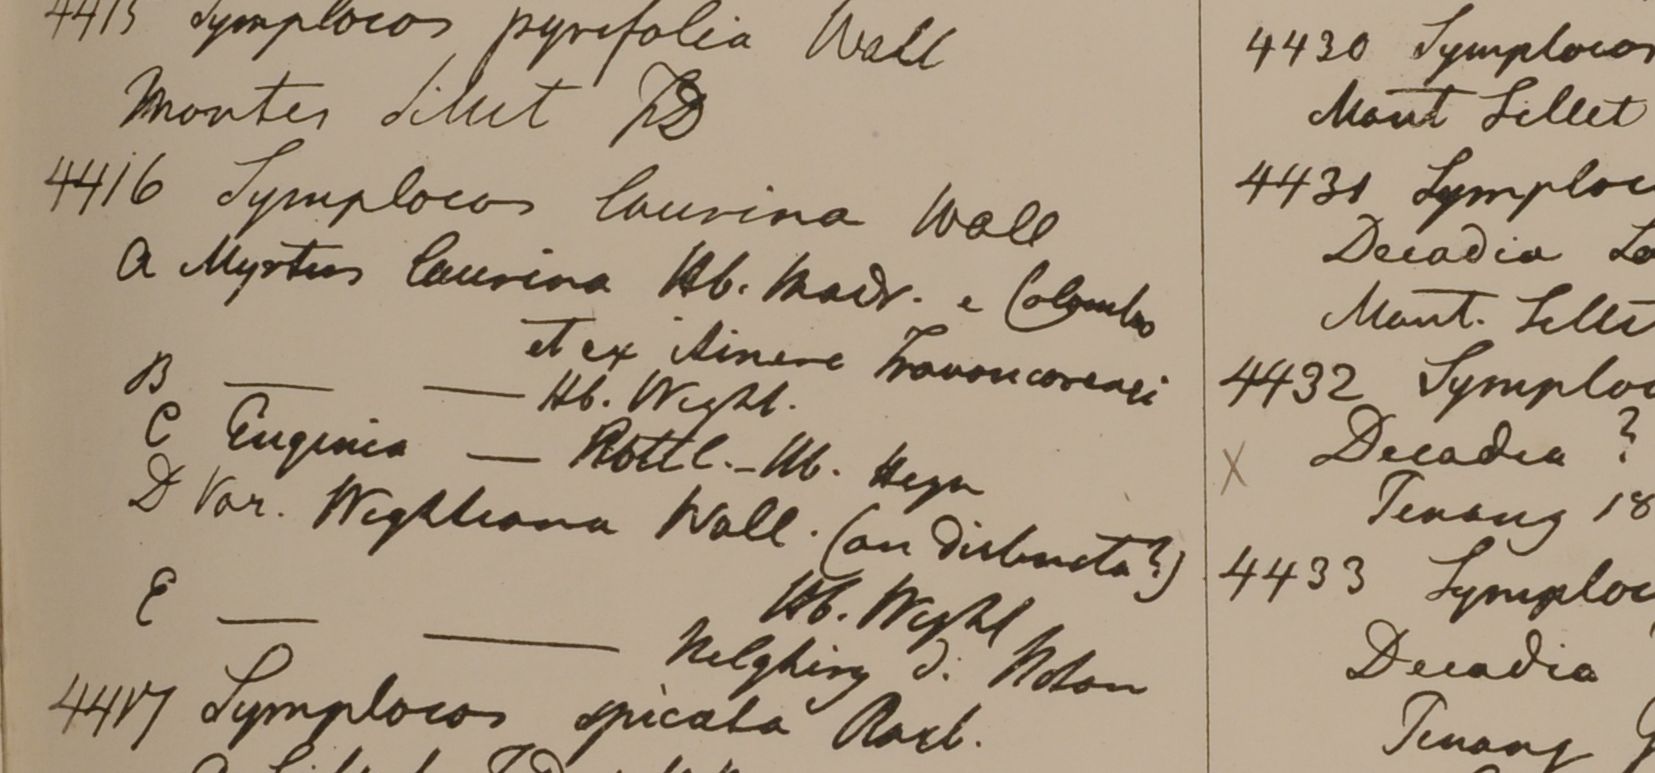 4415 Symplocos pyrifolia Wall
Montes Sillet FD
4416 Symplocos laurina Wall
A Myrtus laurina Hb. Madr. e Colombo
et ex itinere Travancorensi
B — — Hb. Wight.
C Eugenia — Rottl. - Hb. Heyn
D Var. Wightiana Wall. (an distincta?)
Hb. Wight
E — — Nelghiry d. Noton
4417 Symplocos spicata Roxb.
4430 Symplocos
Mont Sillet
4431 Symploc
Decadia
Mont. Sillet
4432 Symploc
X Decadia ?
Penang 18
4433 Symploc
Decadia
Penang